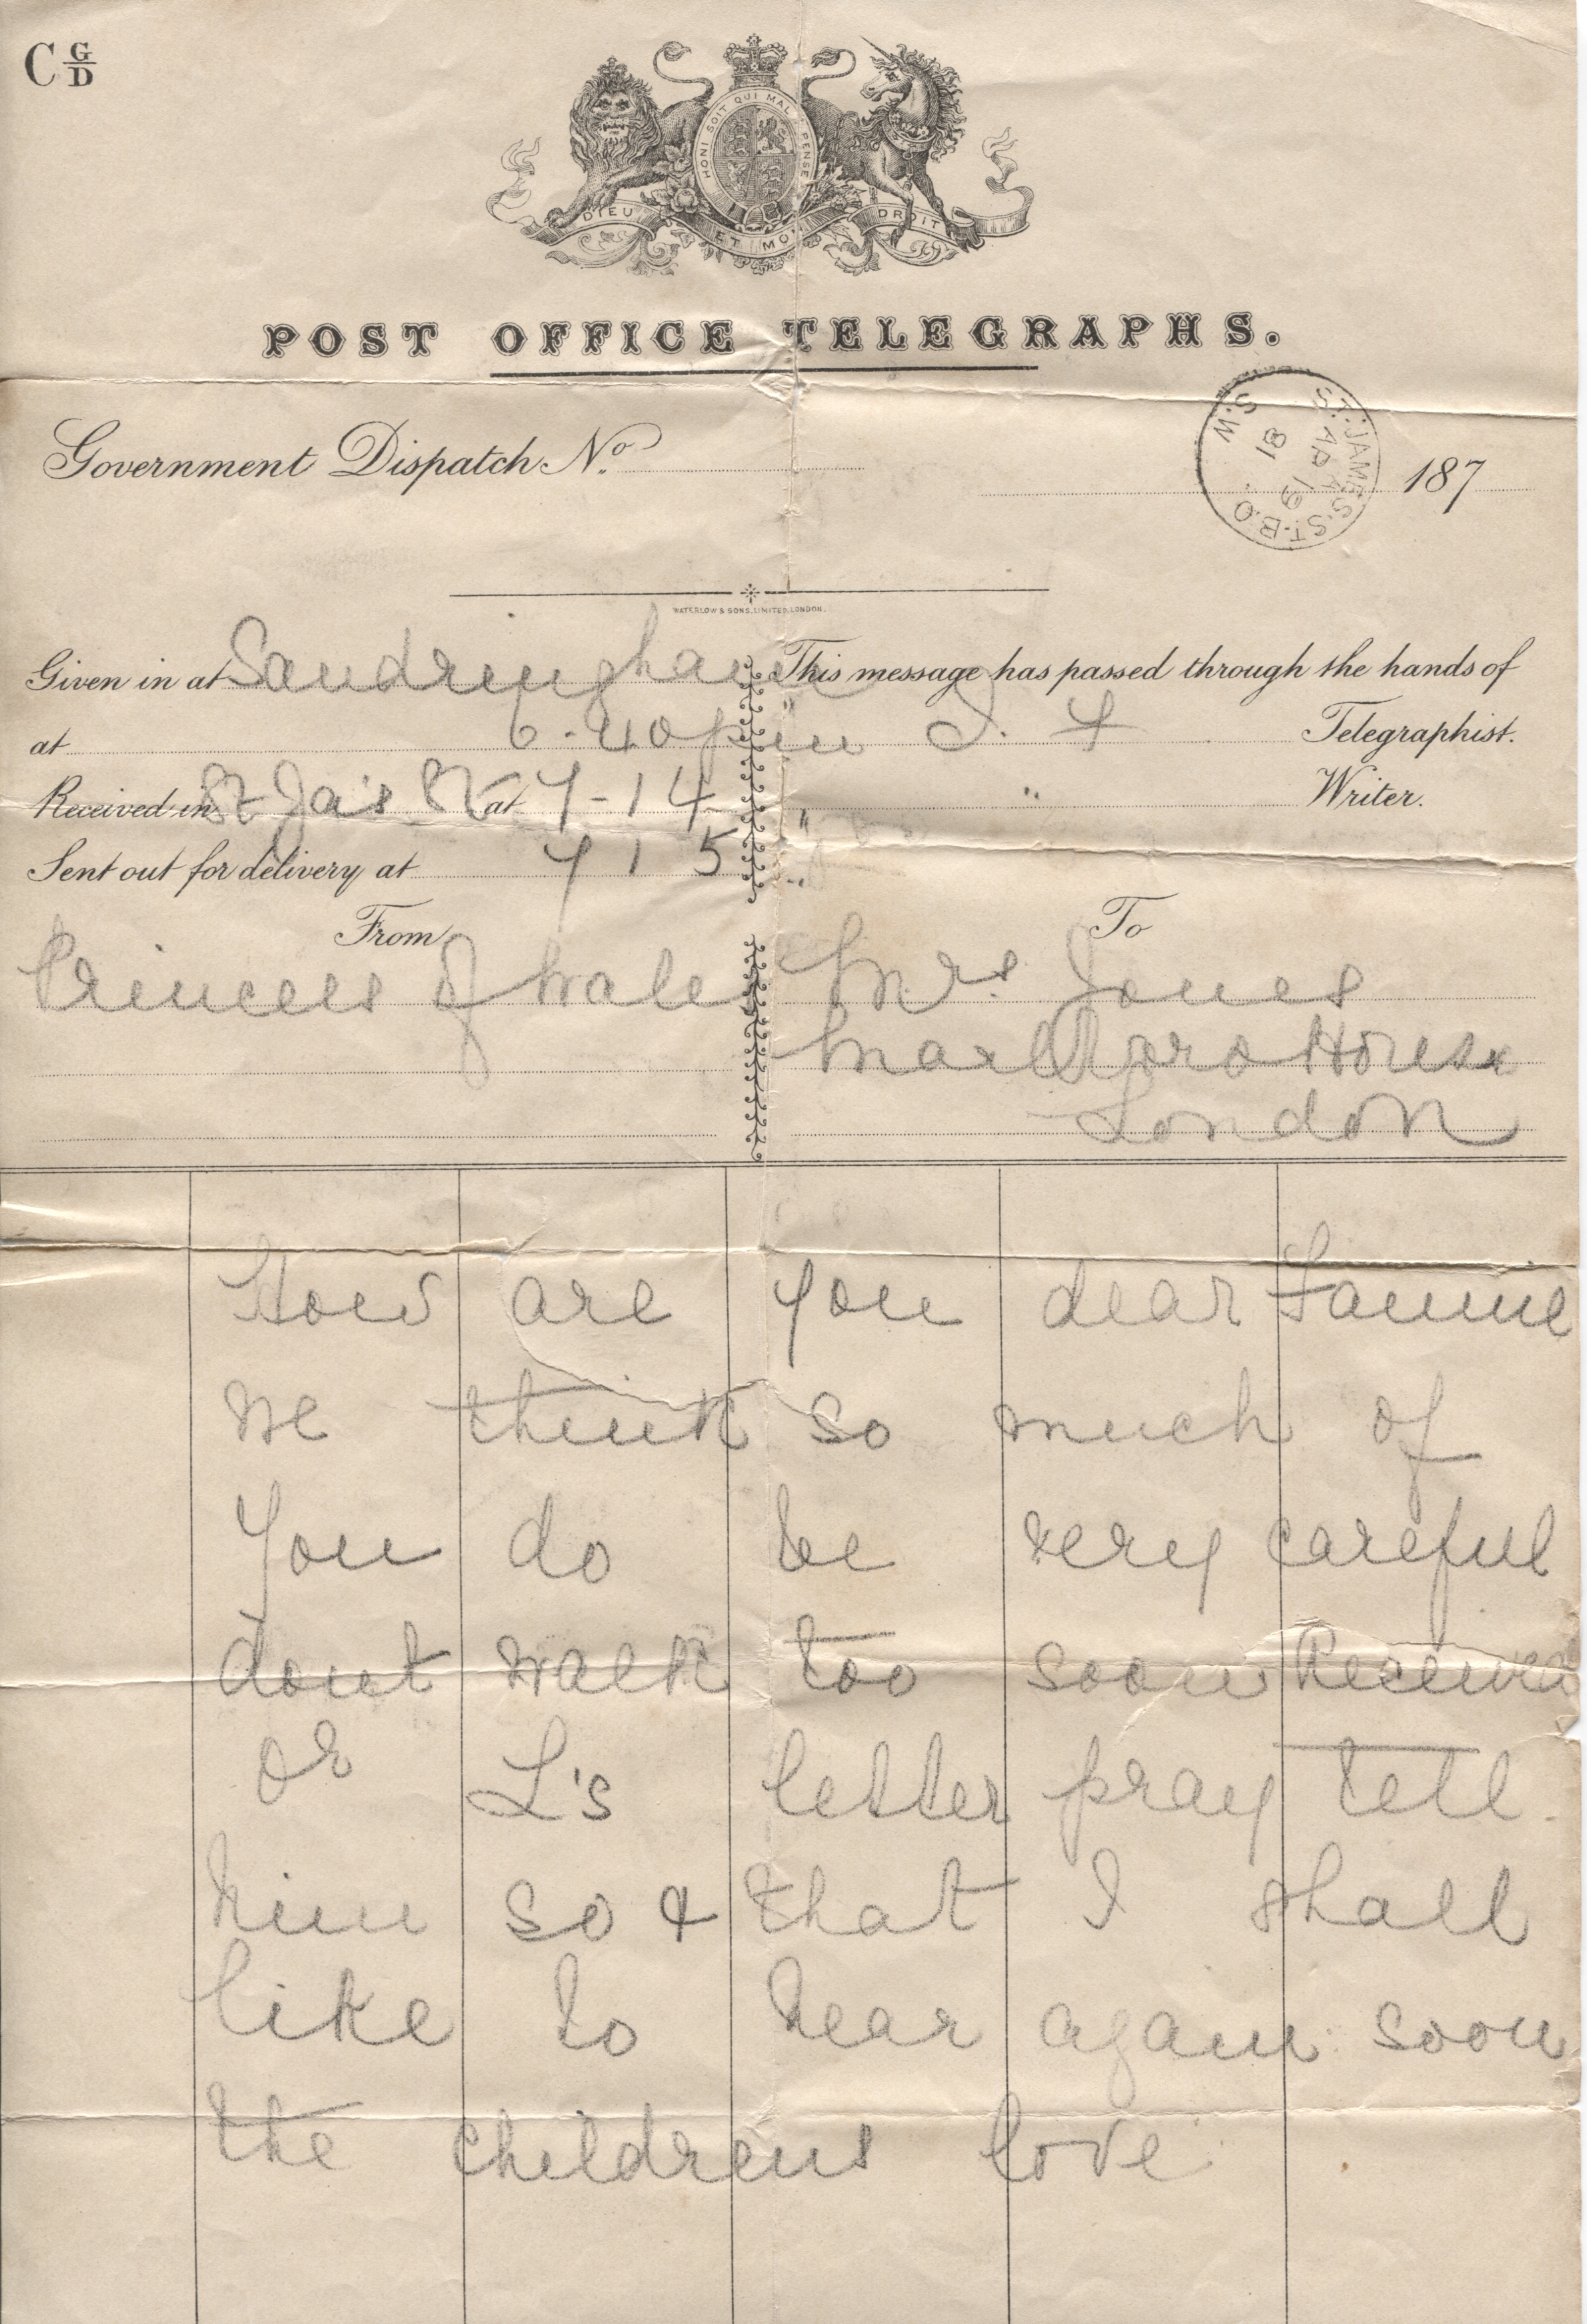 C G/D
HONI SOIT QUI MAL Y PENSE
DIEU ET MON DROIT
POST OFFICE TELEGRAPHS.
Government Dispatch No.
187
ST. JAMES'S ST. B.O. S.W.
AP 19
81
WATERLOW & SONS, LIMITED, LONDON.
Given in at Sandringham
at 6.40 pm
Received in St Ja's St at 7-14
Sent out for delivery at 7 15
This message has passed through the hands of
" Telegraphist.
" " Writer.
From
Princess of Wales
To
Mrs. Jones
Marlboro House
London
How are you dear Fannie
we think so much of
you do be very careful
dont walk too soon Received
Dr L's letter pray tell
him so & that I shall
like to hear again soon
the childrens love